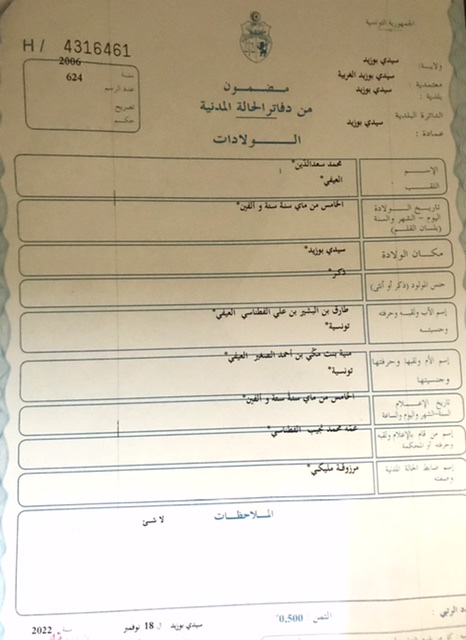 الجمهورية التونسية
H/ 4316461
ولاية: سيدي بوزيد
معتمدية: سيدي بوزيد الغربية
بلدية: سيدي بوزيد
الدائرة البلدية سيدي بوزيد
عمادة:
سنة 2006
عدد الرسم 624
تصريح
حكم
مضمون
من دفاتر الحالة المدنية
الولادات
الإسم محمد سعدالدين*
اللقب العيفي*
تاريخ الولادة الخامس من ماي سنة ستة و ألفين*
اليوم - الشهر والسنة
(بلسان القلم)
مكان الولادة سيدي بوزيد*
جنس المولود (ذكر أو أنثى) ذكر*
إسم الأب ولقبه وحرفته طارق بن البشير بن علي الفطناسي العيفي*
وجنسيته تونسية*
إسم الأم ولقبها وحرفتها منية بنت مكّي بن أحمد الصغير العيفي*
وجنسيتها تونسية*
تاريخ الإعلام الخامس من ماي سنة ستة و ألفين*
السنة-الشهر واليوم والساعة
إسم من قام بالإعلام ولقبه عمّه محمد نجيب الفطناسي*
وحرفته أو المحكمة
إسم ضابط الحالة المدنية مرزوقة مليكي*
وصفته
الملاحظات
لا شئ
الثمن 0,500
سيدي بوزيد ل 18 نوفمبر سنة 2022